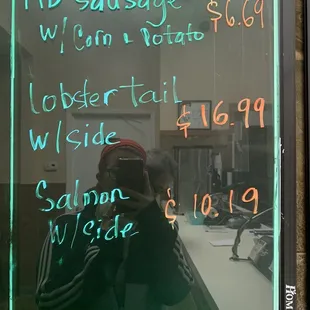 sausage $6.69
w/ Corn & Potato
lobster tail
w/side $16.99
Salmon
w/side $10.19